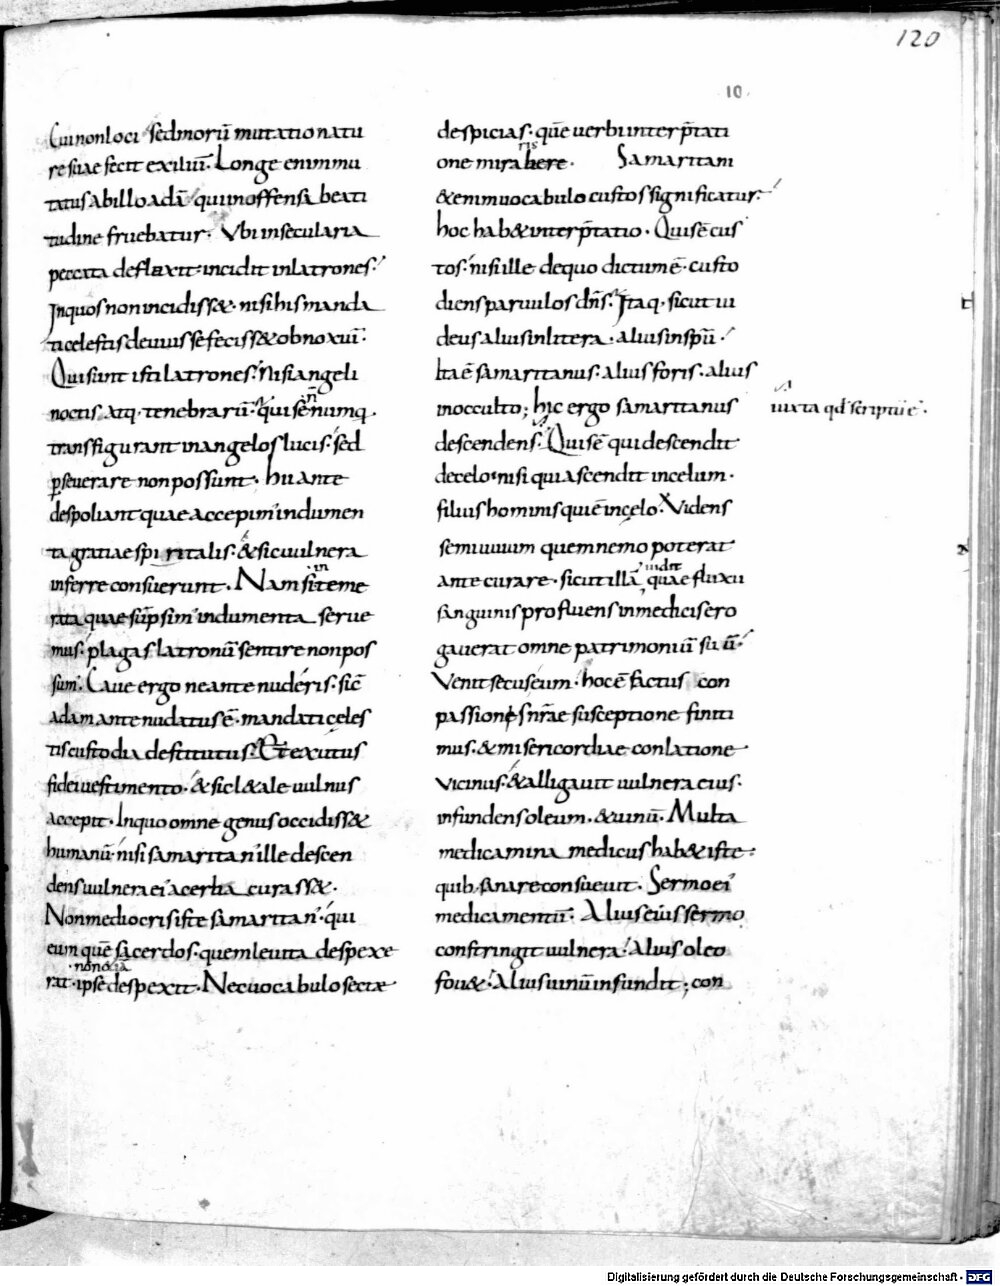 120
10.
Cui non loci sed morũ mutatio natu
re suae fecit exiliũ. Longe enim mu
tatus ab illo adã qui inoffensa beati
tudine fruebatur. Ubi in secularia
peccata deflexit incidit in latrones.
In quos non incidiss&. nisi his manda
ti celestis deuius se feciss& obnoxiũ.
Qui sunt isti latrones. Nisi angeli
noctis atq. tenebrarũ. qui se nõnumq.
transfigurant in angelos lucis. sed
pseuerare non possunt. hi ante
despoliant quae accepim' indumen
ta gratiae spiritalis. & sic uulnera
inferre consuerunt. Nam si in teme
rata quae sũpsim' indumenta serue
mus. plagas latronũ sentire non pos
sum'. Caue ergo ne ante nuderis. sic̃
adam ante nudatus ẽ. mandati celes
tis custodia destitutus. Et exutus
fidei uestimento. & sic l&ale uulnus
accepit. In quo omne genus occidiss&
humanũ. nisi samaritan' ille descen
dens uulnera ei' acerba curass&.
Non mediocris iste samaritan'. qui
eum quẽ sacerdos. quem leuita despexe
rat. ipse non &iã despexit. Nec uocabulo sectae
despicias. quẽ uerbi interp̃tati
one miraberis. Samaritani
& enim uocabulo custos significatur.
hoc hab& interp̃tatio. Quis ẽ cus
tos. nisi ille de quo dictum ẽ. custo
diens paruulos dñs. Itaq. sicut iu
deus alius in litera. alius in spũ.
Ita ẽ samaritanus. alius foris. alius
in occulto; hic ergo samaritanus
iuxta qd scriptũ ẽ.
descendens. Quis ẽ qui descendit
de celo. nisi qui ascendit in celum.
filius hominis qui ẽ in celo. Videns
semiuiuum quem nemo poterat
ante curare. sicut illã quae fluxu
sanguinis profluens in medicis ero
gauerat omne patrimoniũ suũ.
Venit secus eum. hoc ẽ factus con
passionis nr̃ae susceptione finiti
mus. & misericordiae conlatione
vicinus. & alligauit uulnera eius.
infundens oleum. & uinũ. Multa
medicamina medicus hab& iste.
quib. sanare consueuit. Sermo ei'
medicamentũ. Alius eius sermo
constringit uulnera. Alius oleo
fou&. Alius uinũ infundit; con
Digitalisierung gefördert durch die Deutsche Forschungsgemeinschaft - DFG